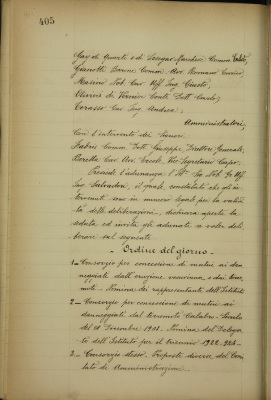 405
Gay di Quarti e di Lesegno Marchese Comm.
Gianotti Barone Comm. Avv. Romano
Masino Nob. Cav. Uff. Ing. Onesto,
Olivieri di Vernier Conte Dott. Carlo,
Cav. Ing. Andrea,
Amministratori,
Con l'intervento dei Signori
Fabris Comm. Dott. Giuseppe, Direttore Generale,
Cav. Avv. Ercole, Vice Segretario Capo.
Presiede l'adunanza l'Ill.mo Sig. Nob. Gr. Uff.
Ing. Salvadori, il quale, constatato che gli in-
tervenuti sono in numero legale per la validi-
tà delle deliberazioni, dichiara aperta la
seduta ed invita gli adunati a voler deli-
berare sul seguente
Ordine del giorno
1.- Consorzio per concessione di mutui ai dan-
neggiati dall'eruzione vesuviana e dai terre-
moti. - Nomina dei rappresentanti dell'Istituto
2.- Consorzio per concessione di mutui ai
danneggiati dal terremoto Calabro Siculo
del 28 Dicembre 1908. - Nomina del Delega-
to dell'Istituto per il triennio 1922-924.-
3.- Consorzio stesso. Proposte diverse del Comi-
tato di Amministrazione.